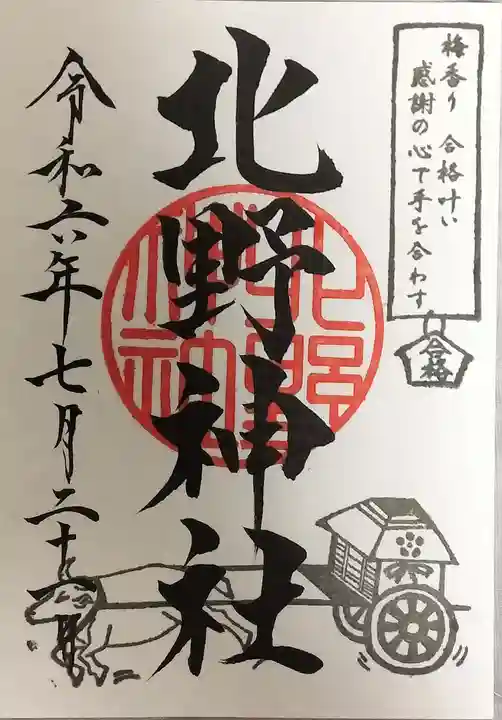 梅香り 合格叶い
感謝の心で手を合わす
合格
北野神社
北野神社
令和六年七月二十二日